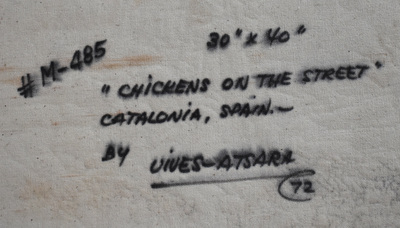 30" x 40"
# M-485
"CHICKENS ON THE STREET"
CATALONIA, SPAIN.-
BY VIVES-ATSARA
72